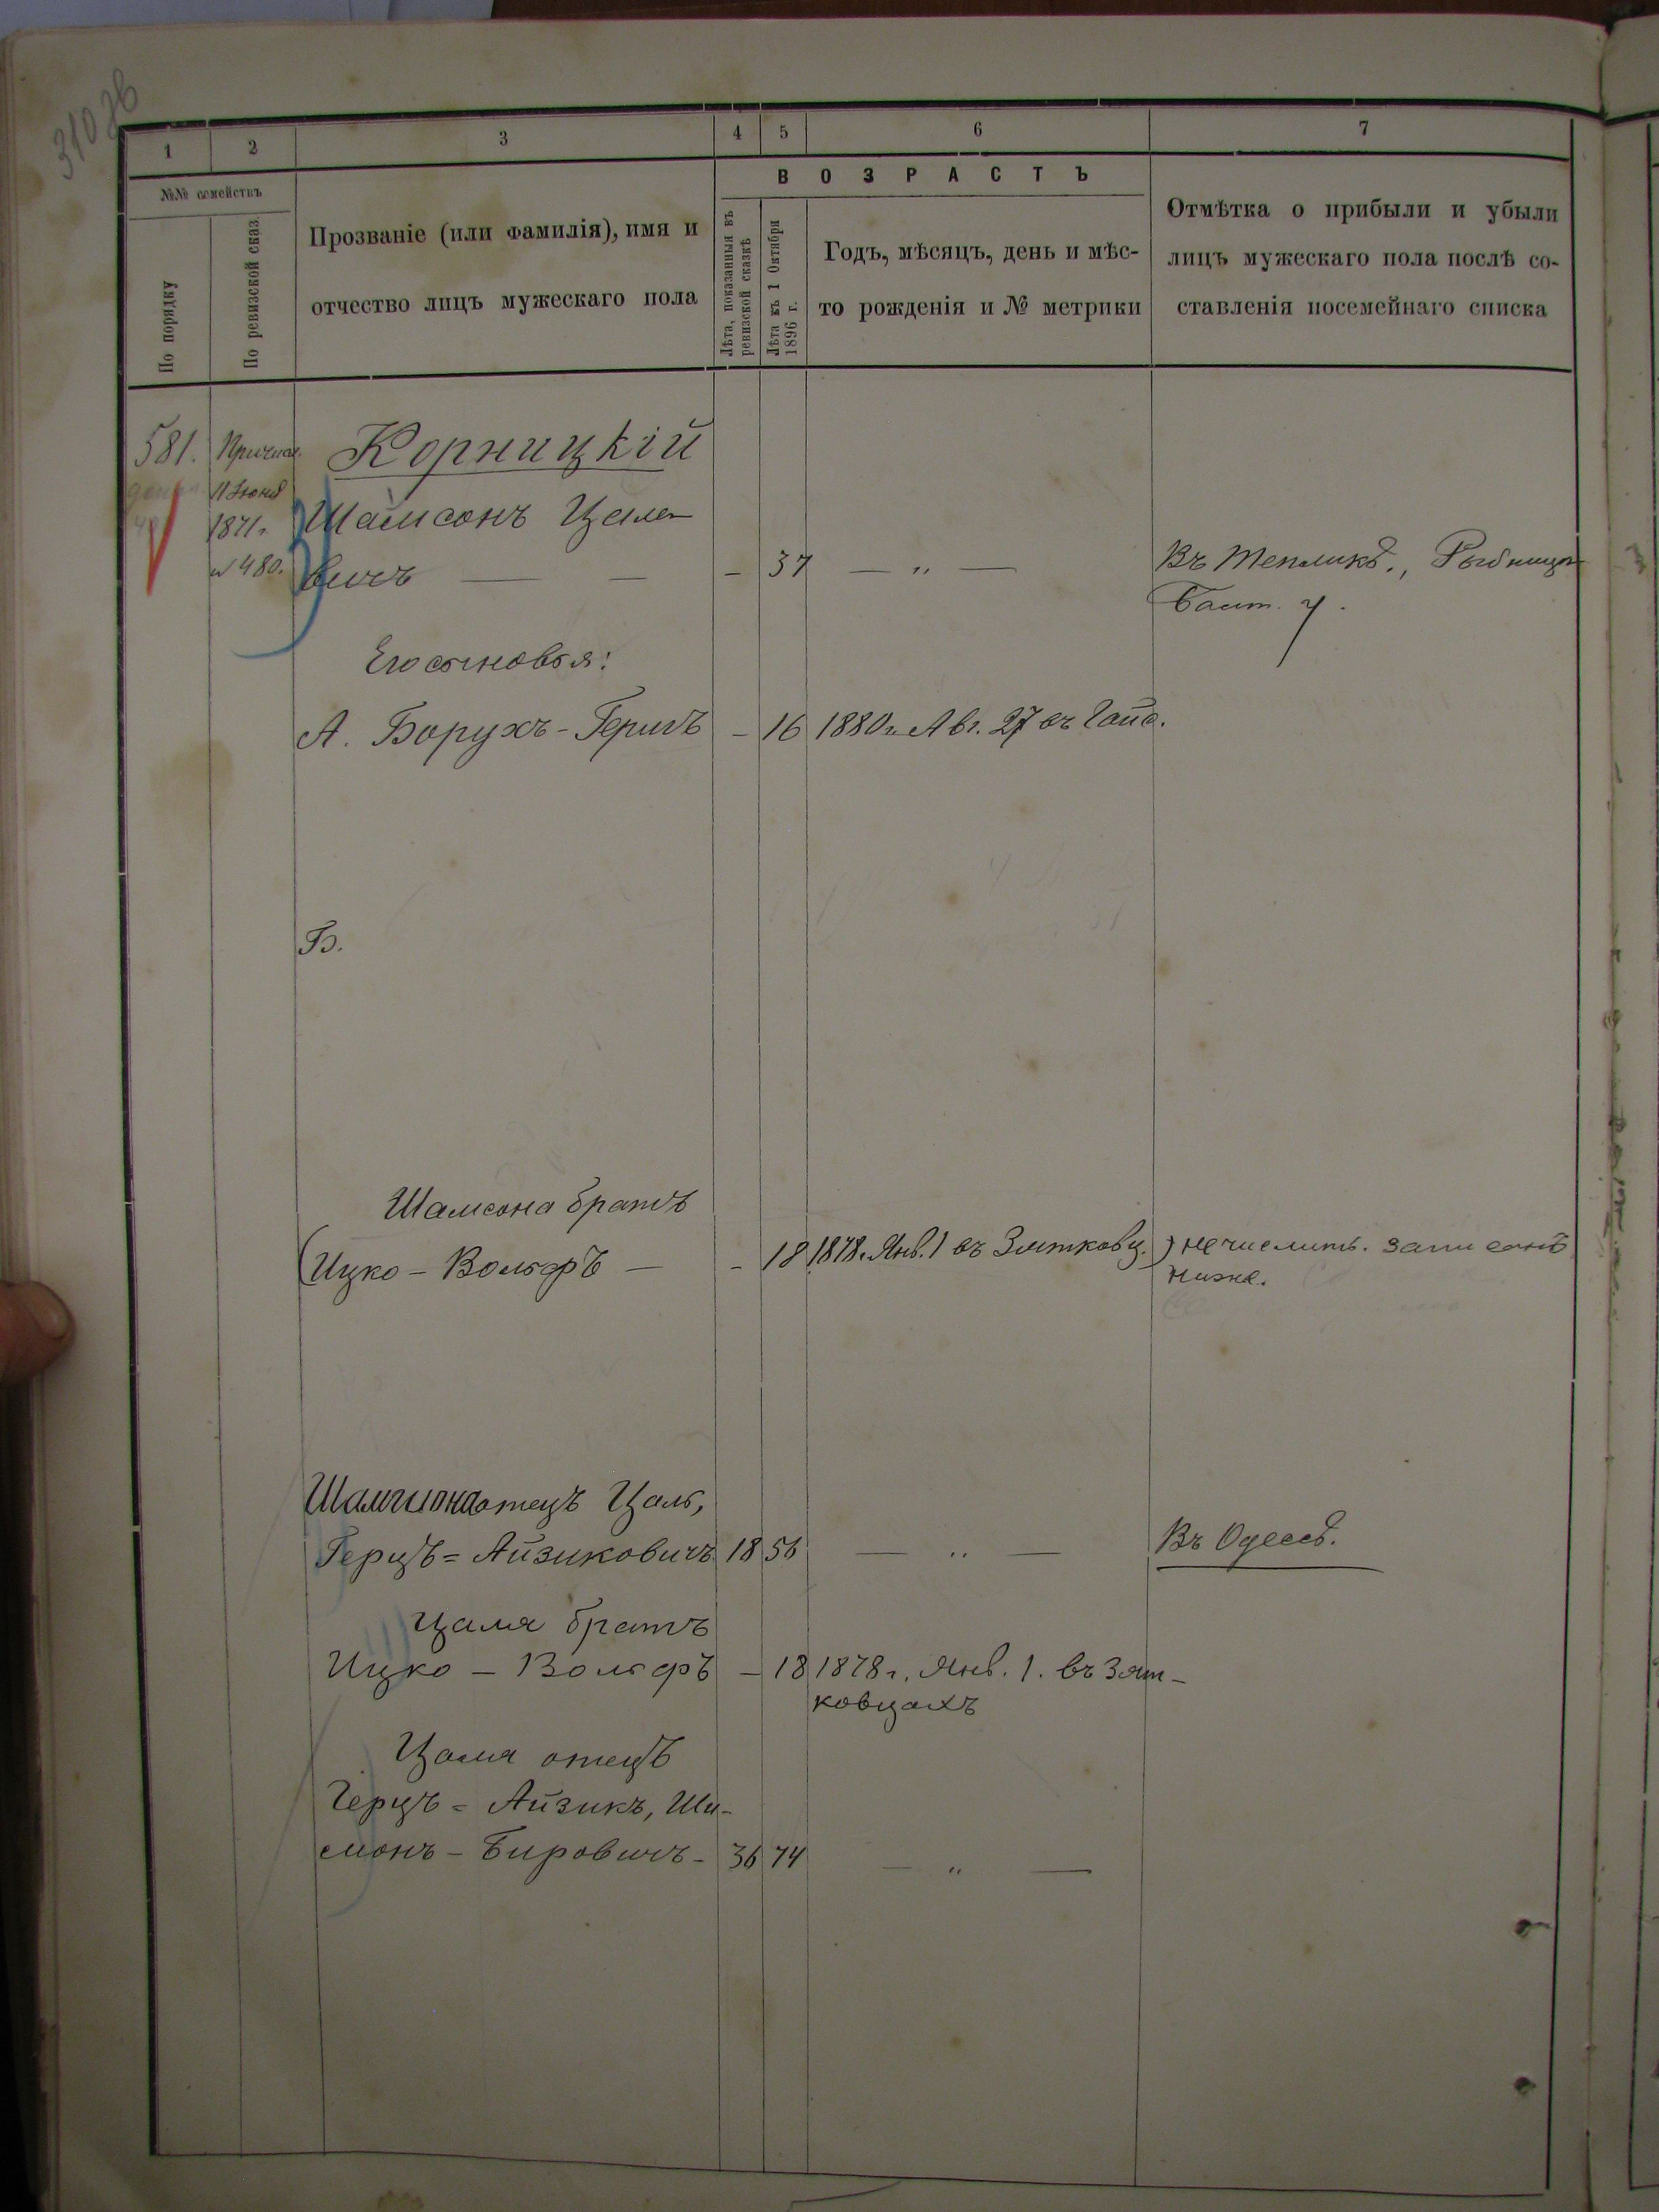 310 об
1 2 3 4 5 6 7
№№ семействъ
По порядку
По ревизской сказ.
Прозваніе (или фамилія), имя и
отчество лицъ мужескаго пола
ВОЗРАСТЪ
Лѣта, показанныя въ
ревизской сказкѣ
Лѣта къ 1 Октября
1896 г.
Годъ, мѣсяцъ, день и мѣс-
то рожденія и № метрики
Отмѣтка о прибыли и убыли
лицъ мужескаго пола послѣ со-
ставленія посемейнаго списка
581. Причисл. Корницкій
11 Іюня
1871 г. Шамсонъ Цале-
№ 480. вичъ — — - 37 — „ — Въ Тепликѣ., Рыбница
Балт. у.
Его сыновья:
А. Борухъ-Гершъ - 16 1880 г. Авг. 27 въ Гайс.
Б.
Шамсона братъ
(Ицко - Вольфъ — - 18 1878 г. Янв. 1 въ Зятковц.) не числить. записанъ
ниже.
Шамшона отецъ Цаль,
Герцъ = Айзиковичъ 18 56 — „ — Въ Одессѣ.
Цаля братъ
Ицко - Вольфъ - 18 1878 г. Янв. 1. въ Зят-
ковцахъ
Цаля отецъ
Герцъ = Айзикъ, Ши-
монъ - Бировичъ - 36 74 — „ —